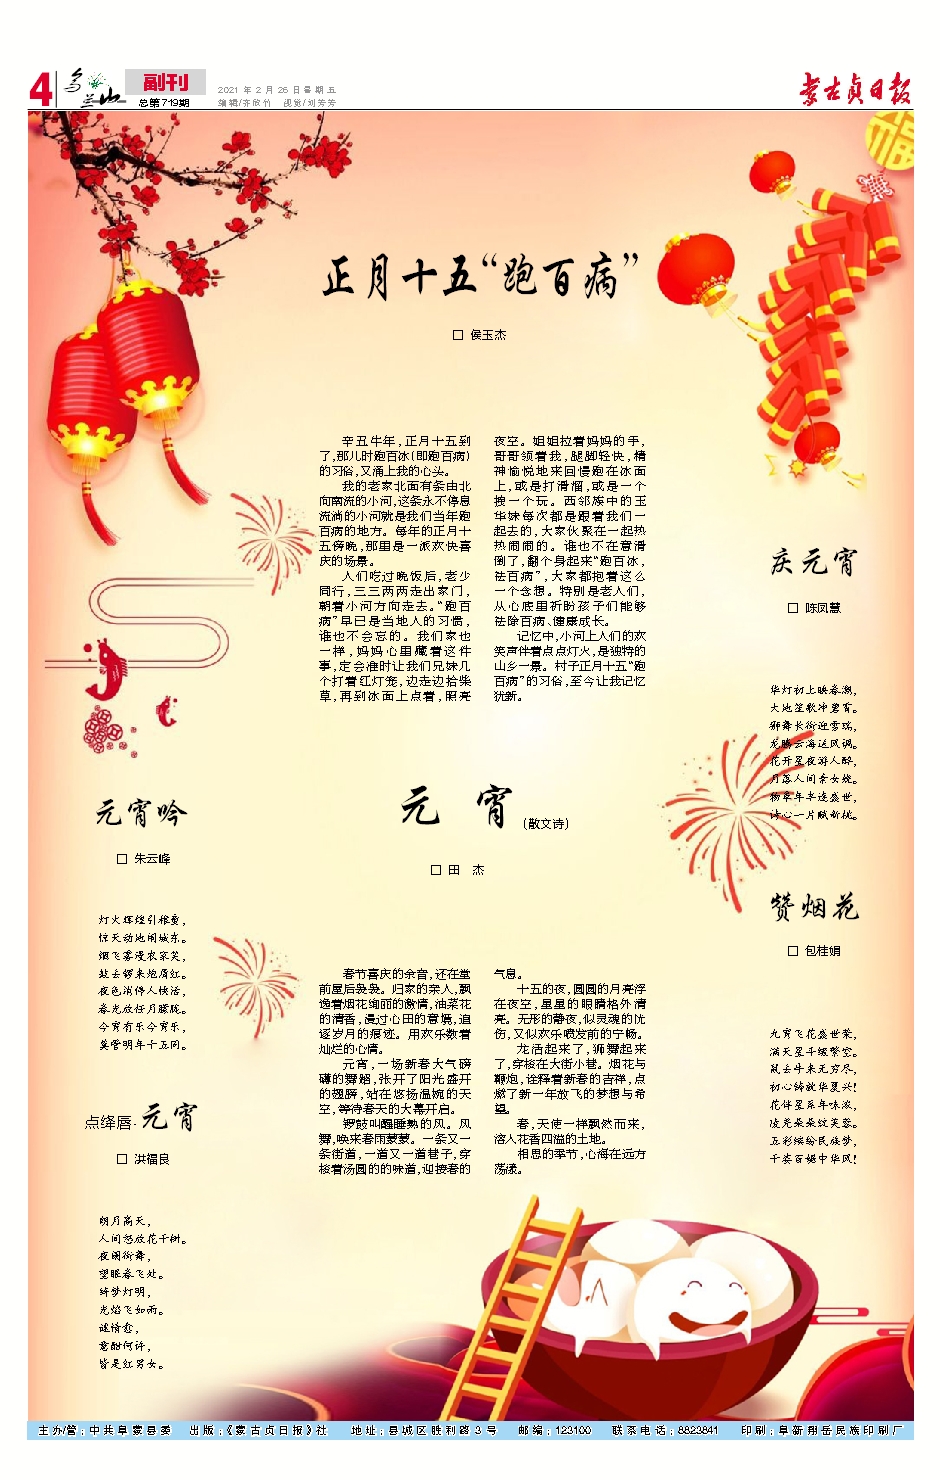 4
乌兰山
副刊
总第719期
2021年2月26日星期五
编辑/齐欣竹 视觉/刘芳芳
蒙古贞日报
正月十五“跑百病”
□ 侯玉杰
辛丑牛年,正月十五到
了,那儿时跑百冰(即跑百病)
的习俗,又涌上我的心头。
我的老家北面有条由北
向南流的小河,这条永不停息
流淌的小河就是我们当年跑
百病的地方。每年的正月十
五傍晚,那里是一派欢快喜
庆的场景。
人们吃过晚饭后,老少
同行,三三两两走出家门,
朝着小河方向走去。“跑百
病”早已是当地人的习惯,
谁也不会忘的。我们家也
一样,妈妈心里藏着这件
事,定会准时让我们兄妹几
个打着红灯笼,边走边拾柴
草,再到冰面上点着,照亮
夜空。姐姐拉着妈妈的手,
哥哥领着我,腿脚轻快,精
神愉悦地来回慢跑在冰面
上,或是打滑溜,或是一个
拽一个玩。西邻族中的玉
华妹每次都是跟着我们一
起去的,大家伙聚在一起热
热闹闹的。谁也不在意滑
倒了,翻个身起来“跑百冰,
祛百病”,大家都抱着这么
一个念想。特别是老人们,
从心底里祈盼孩子们能够
祛除百病、健康成长。
记忆中,小河上人们的欢
笑声伴着点点灯火,是独特的
山乡一景。村子正月十五“跑
百病”的习俗,至今让我记忆
犹新。
庆元宵
□ 陈凤慧
华灯初上映春潮,
大地笙歌冲碧霄。
狮舞长街迎雪瑞,
龙腾云海送风调。
花开星夜游人醉,
月落人间素女娆。
物阜年丰逢盛世,
诗心一片赋新桃。
元宵吟
□ 朱云峰
灯火辉煌引稚童,
惊天动地闹城东。
烟飞雾漫农家笑,
鼓去锣来炮屑红。
夜色消停人快活,
春光放任月朦胧。
今宵有乐今宵乐,
莫管明年十五同。
元 宵(散文诗)
□ 田 杰
春节喜庆的余音,还在堂
前屋后袅袅。归家的亲人,飘
逸着烟花绚丽的激情,油菜花
的清香,漫过心田的意境,追
逐岁月的痕迹。用欢乐数着
灿烂的心情。
元宵,一场新春大气磅
礴的舞蹈,张开了阳光盛开
的翅膀,站在悠扬温婉的天
空,等待春天的大幕开启。
锣鼓叫醒睡熟的风。风
舞,唤来春雨蒙蒙。一条又一
条街道,一道又一道巷子,穿
梭着汤圆的的味道,迎接春的
气息。
十五的夜,圆圆的月亮浮
在夜空,星星的眼睛格外清
亮。无形的静夜,似灵魂的忧
伤,又似欢乐喷发前的宁畅。
龙活起来了,狮舞起来
了,穿梭在大街小巷。烟花与
鞭炮,诠释着新春的吉祥,点
燃了新一年放飞的梦想与希
望。
春,天使一样飘然而来,
溶入花香四溢的土地。
相思的季节,心海在远方
荡漾。
赞烟花
□ 包桂娟
九霄飞花盛世荣,
满天星斗缀繁空。
鼠去牛来无穷尽,
初心铸就华夏兴!
花伴星辰年味浓,
凌芜朵朵绽芙蓉。
五彩缤纷民族梦,
千姿百媚中华风!
点绛唇·元宵
□ 洪福良
朗月高天,
人间怒放花千树。
夜阑街舞,
望眼春飞处。
绮梦灯明,
光焰飞如雨。
谜情愈,
意酣何许,
皆是红男女。
福
主办/管:中共阜蒙县委 出版:《蒙古贞日报》社 地址:县城区胜利路3号 邮编:123100 联系电话:8823841 印刷:阜新翔岳民族印刷厂